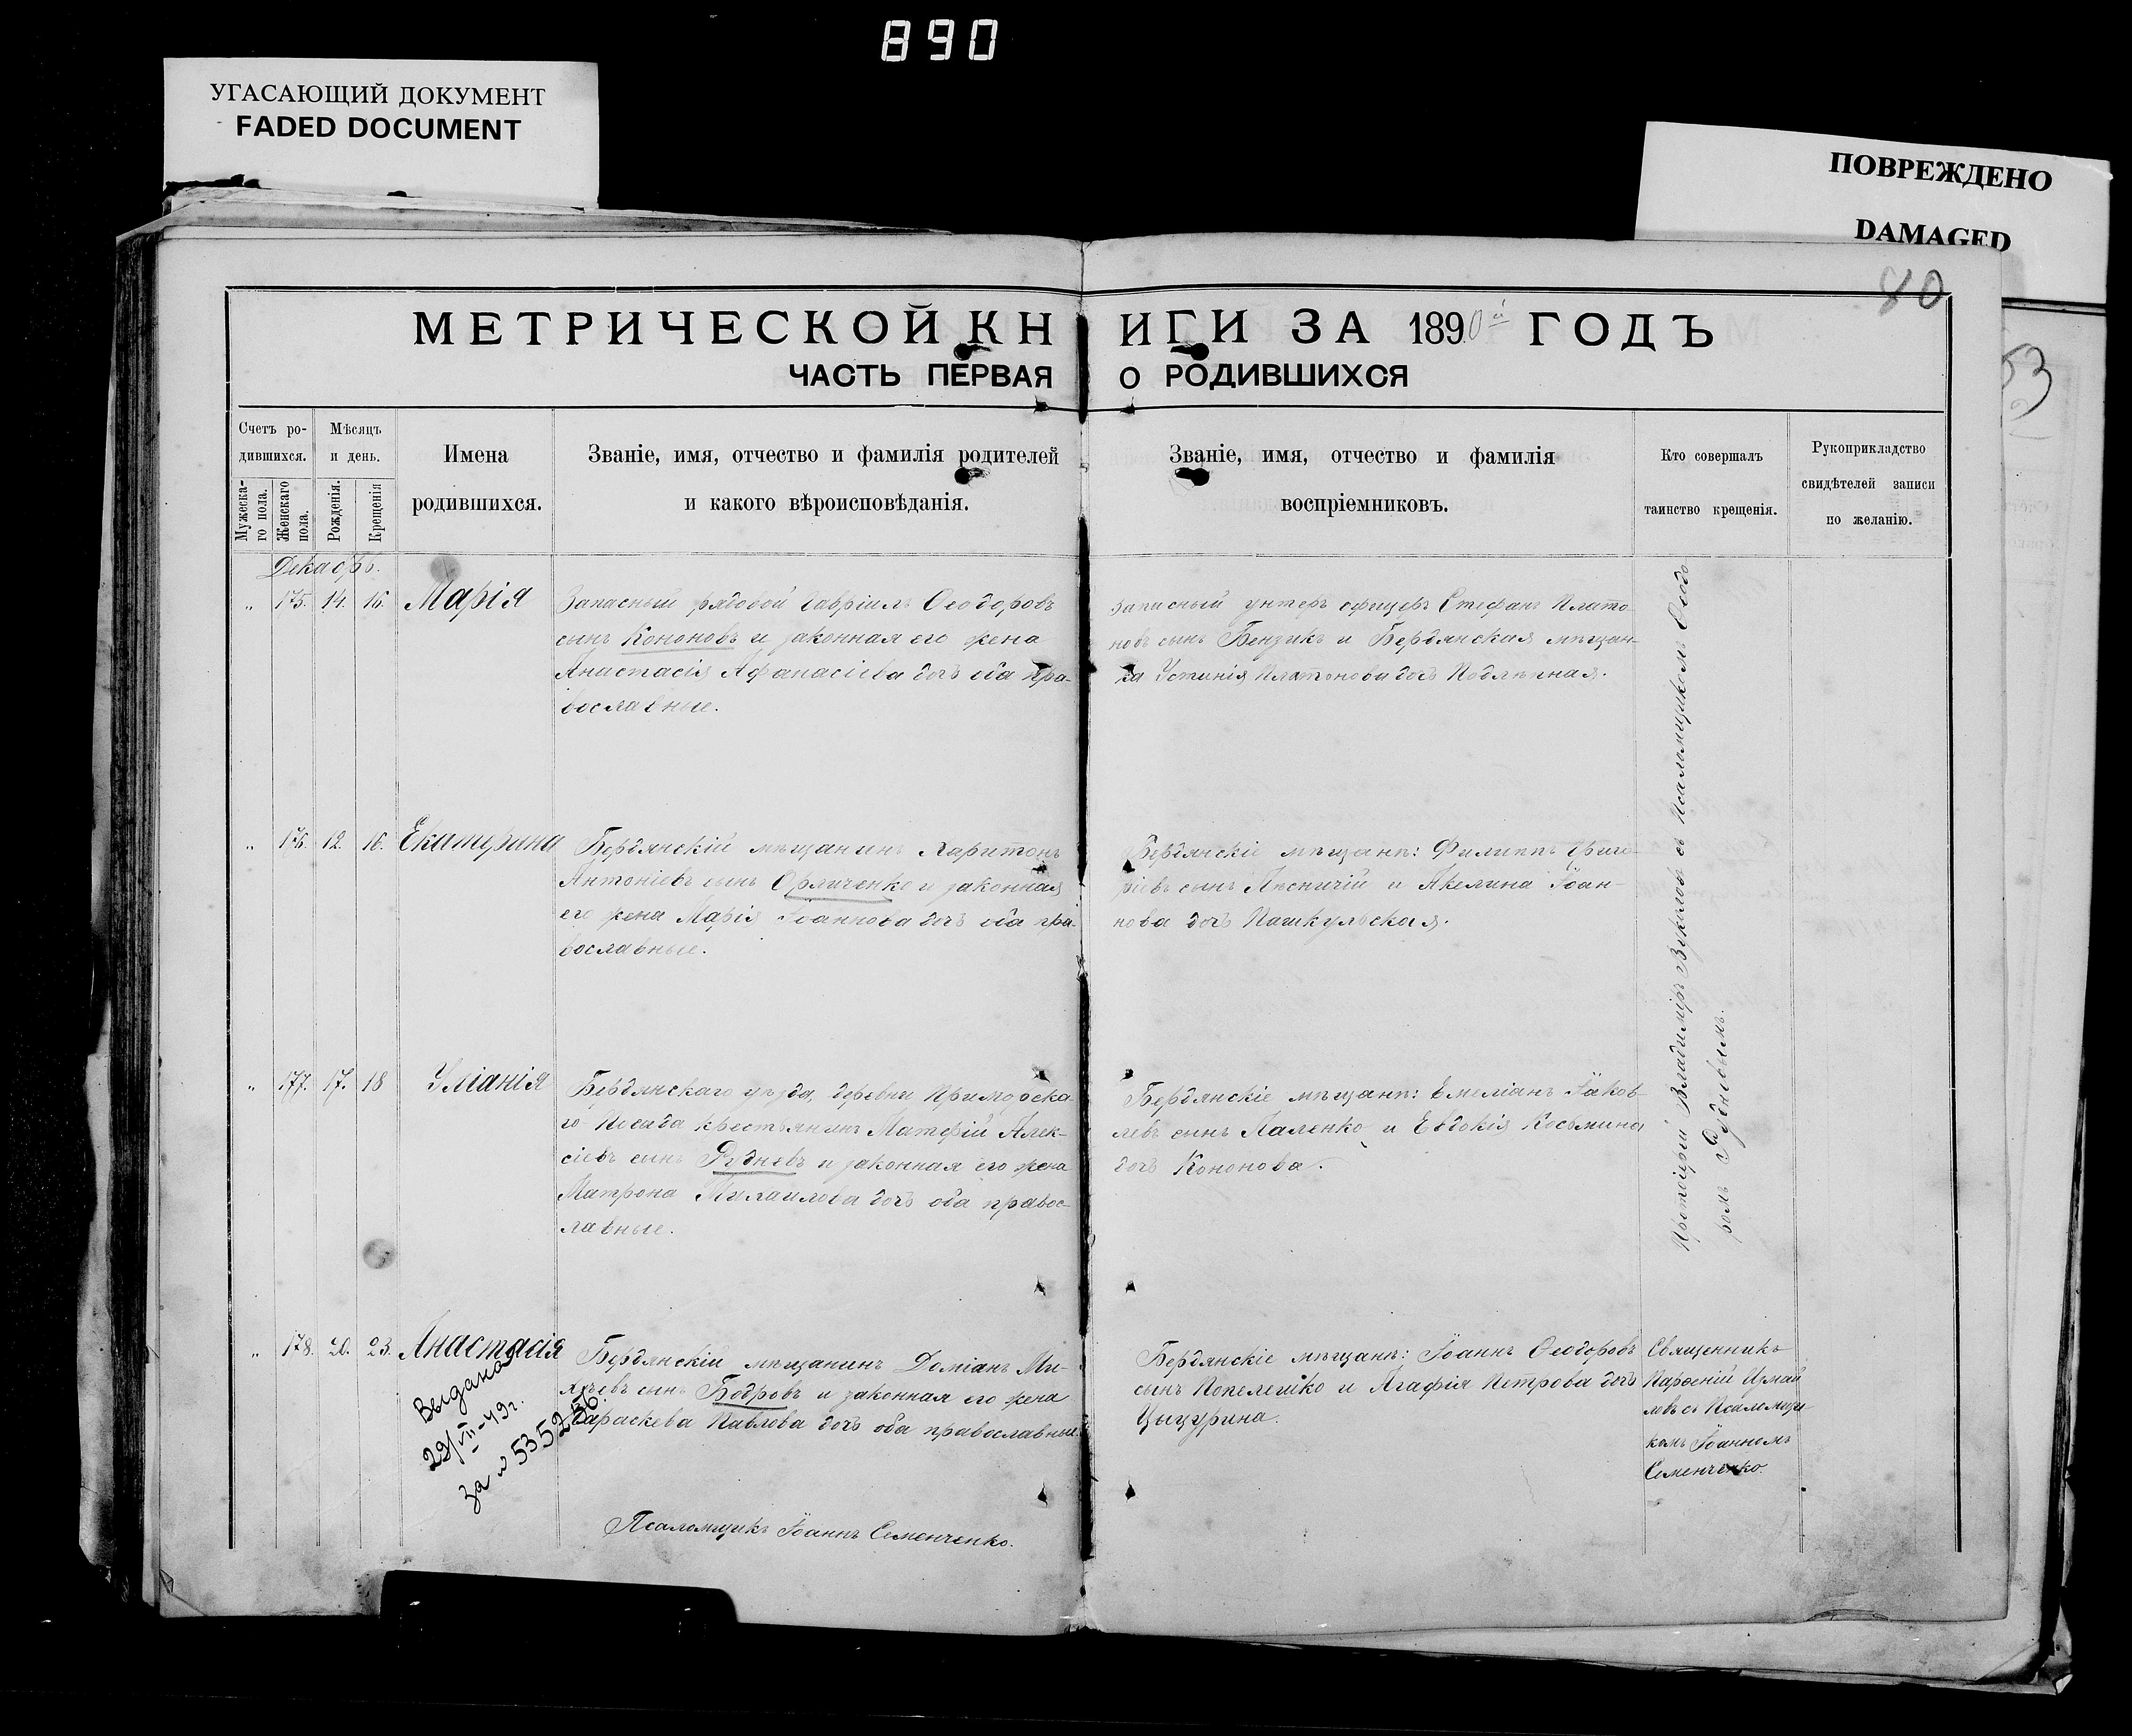 890
УГАСАЮЩИЙ ДОКУМЕНТ
FADED DOCUMENT
ПОВРЕЖДЕНО
DAMAGED
80
53
МЕТРИЧЕСКОЙ КНИГИ ЗА 1890й ГОДЪ
ЧАСТЬ ПЕРВАЯ О РОДИВШИХСЯ
Счетъ ро-
дившихся.
Мужеска-
го пола.
Женскаго
пола.
Мѣсяцъ
и день.
Рожденія.
Крещенія
Имена
родившихся.
Званіе, имя, отчество и фамилія родителей
и какого вѣроисповѣданія.
Званіе, имя, отчество и фамилія
воспріемниковъ.
Кто совершалъ
таинство крещенія.
Рукоприкладство
свидѣтелей записи
по желанію.
Декабрь.
„ 175. 14. 16. Марія
Запасный рядовой Гавріилъ Ѳеодоровъ
сынъ Кононовъ и законная его жена
Анастасія Афанасіева дочь оба пра-
вославные.
Запасный унтеръ офицеръ Стефанъ Плато
новъ сынъ Бензикъ и Бердянская мѣщан-
ка Устинія Платонова дочь
„ 176. 12. 16. Екатерина
Бердянскій мѣщанинъ Харитонъ
Антоніевъ сынъ и законная
его жена Марія Іоаннова дочь оба пра-
вославные.
Бердянскіе мѣщане: Филиппъ Григо-
ріевъ сынъ Лѣсничій и Акелина Іоан-
нова дочь Пашкульская.
„ 177. 17. 18 Уліанія
Бердянскаго уѣзда, деревни Приморска-
го Посада крестьянинъ Матфій Алек-
сіевъ сынъ Рудневъ и законная его жена
Матрона Михаилова дочь оба правос-
лавные.
Бердянскіе мѣщане: Емеліанъ Іаков-
левъ сынъ Паленко и Евдокія Косьмина
дочь Кононова.
Протоіерей Владиміръ съ Псаломщикомъ Ѳеодо
ромъ Рудневымъ.
„ 178. 20. 23. Анастасія
Бердянскій мѣщанинъ Доміанъ Ми-
хѣевъ сынъ Бодровъ и законная его жена
Параскева Павлова дочь оба православные.
Бердянскіе мѣщане: Іоаннъ Ѳеодоровъ
сынъ Попелешко и Агафія Петрова дочь
Цыцурина.
Священникъ
Парѳеній Измай
ловъ съ Псаломщи
комъ Іоанномъ
Семенченко.
Выдана
29/VII-49г.
за № 535256
Псаломщикъ Іоаннъ Семенченко.